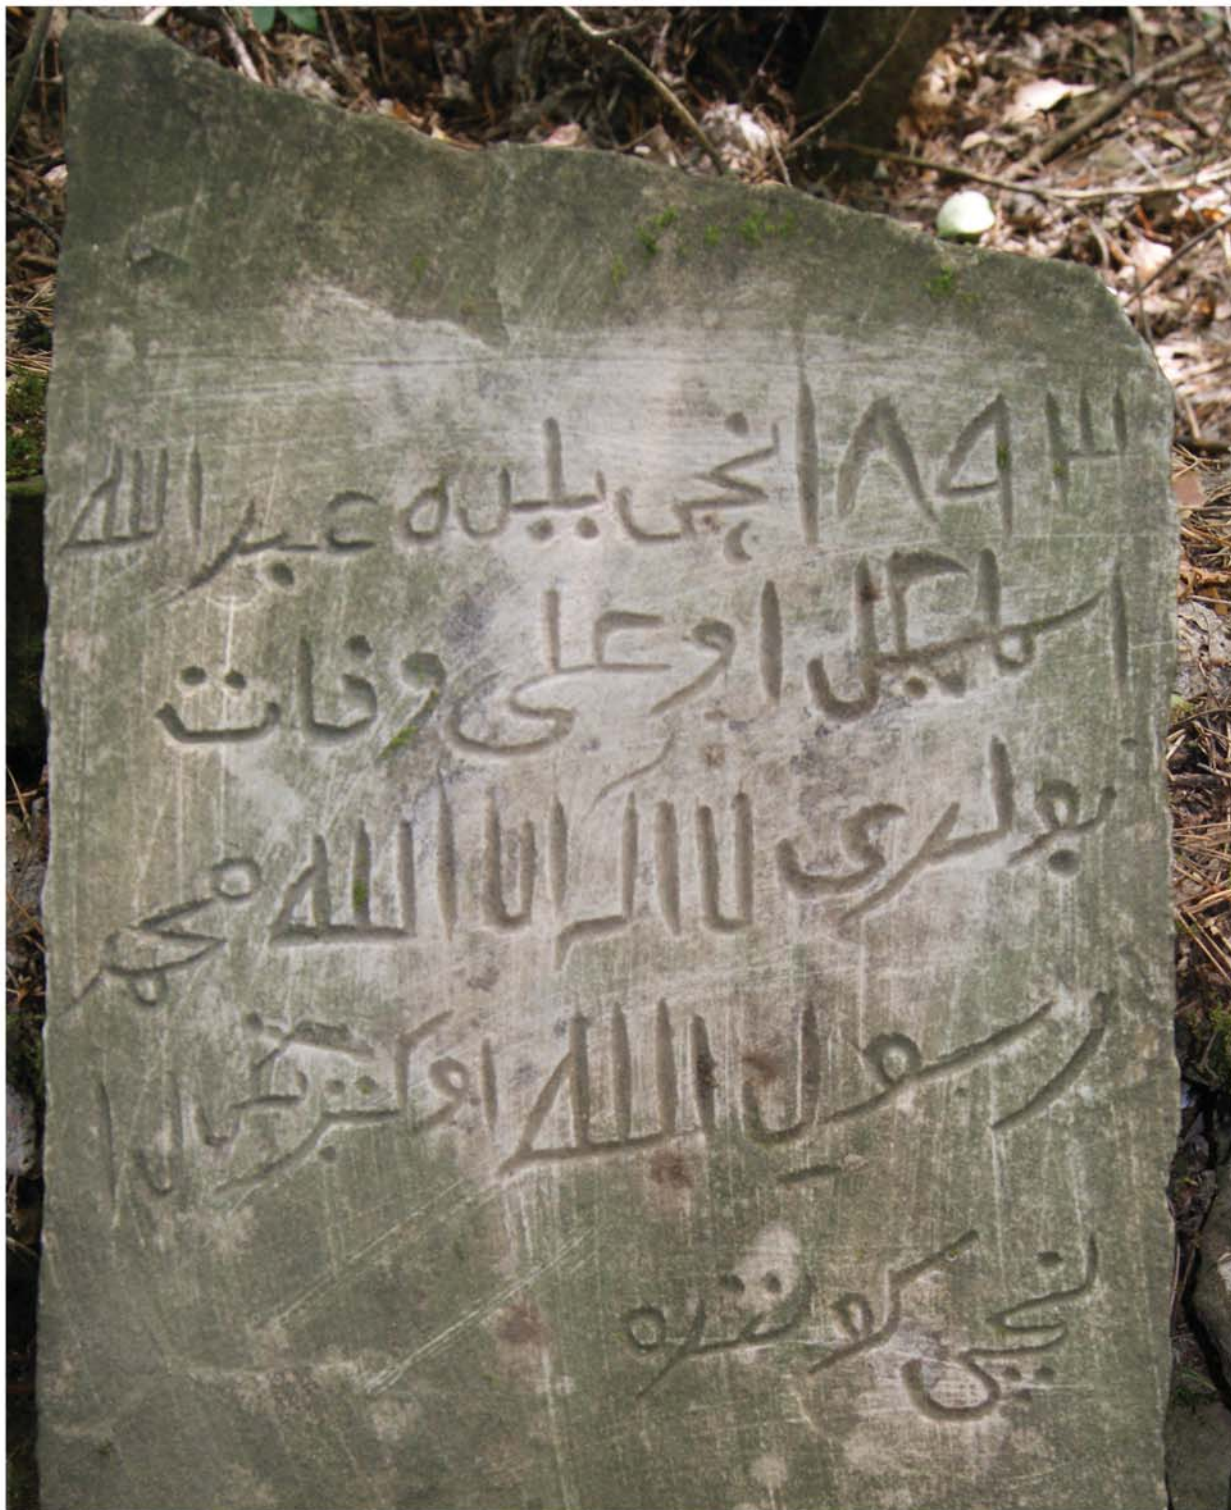 ١٨٩٣ نچی يلده عبد الله
اسماعيل اوغلی وفات
بولدی لا اله الا الله محمد
رسول الله اوكتبر
نچی كوننده